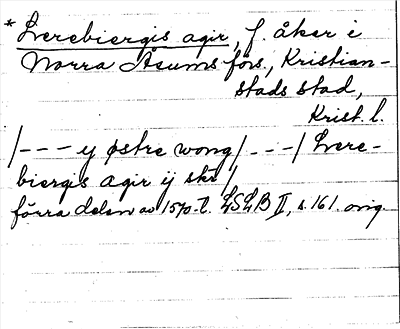 * Lverebiergis agir, f. åker i
Norra Åsums förs., Kristian-
stads stad,
Krist. l.
/--- y østre wong/---/ Lvere-
biergis agir ij skr /
förra delen av 1570-t. LSLB II, s. 161. orig.